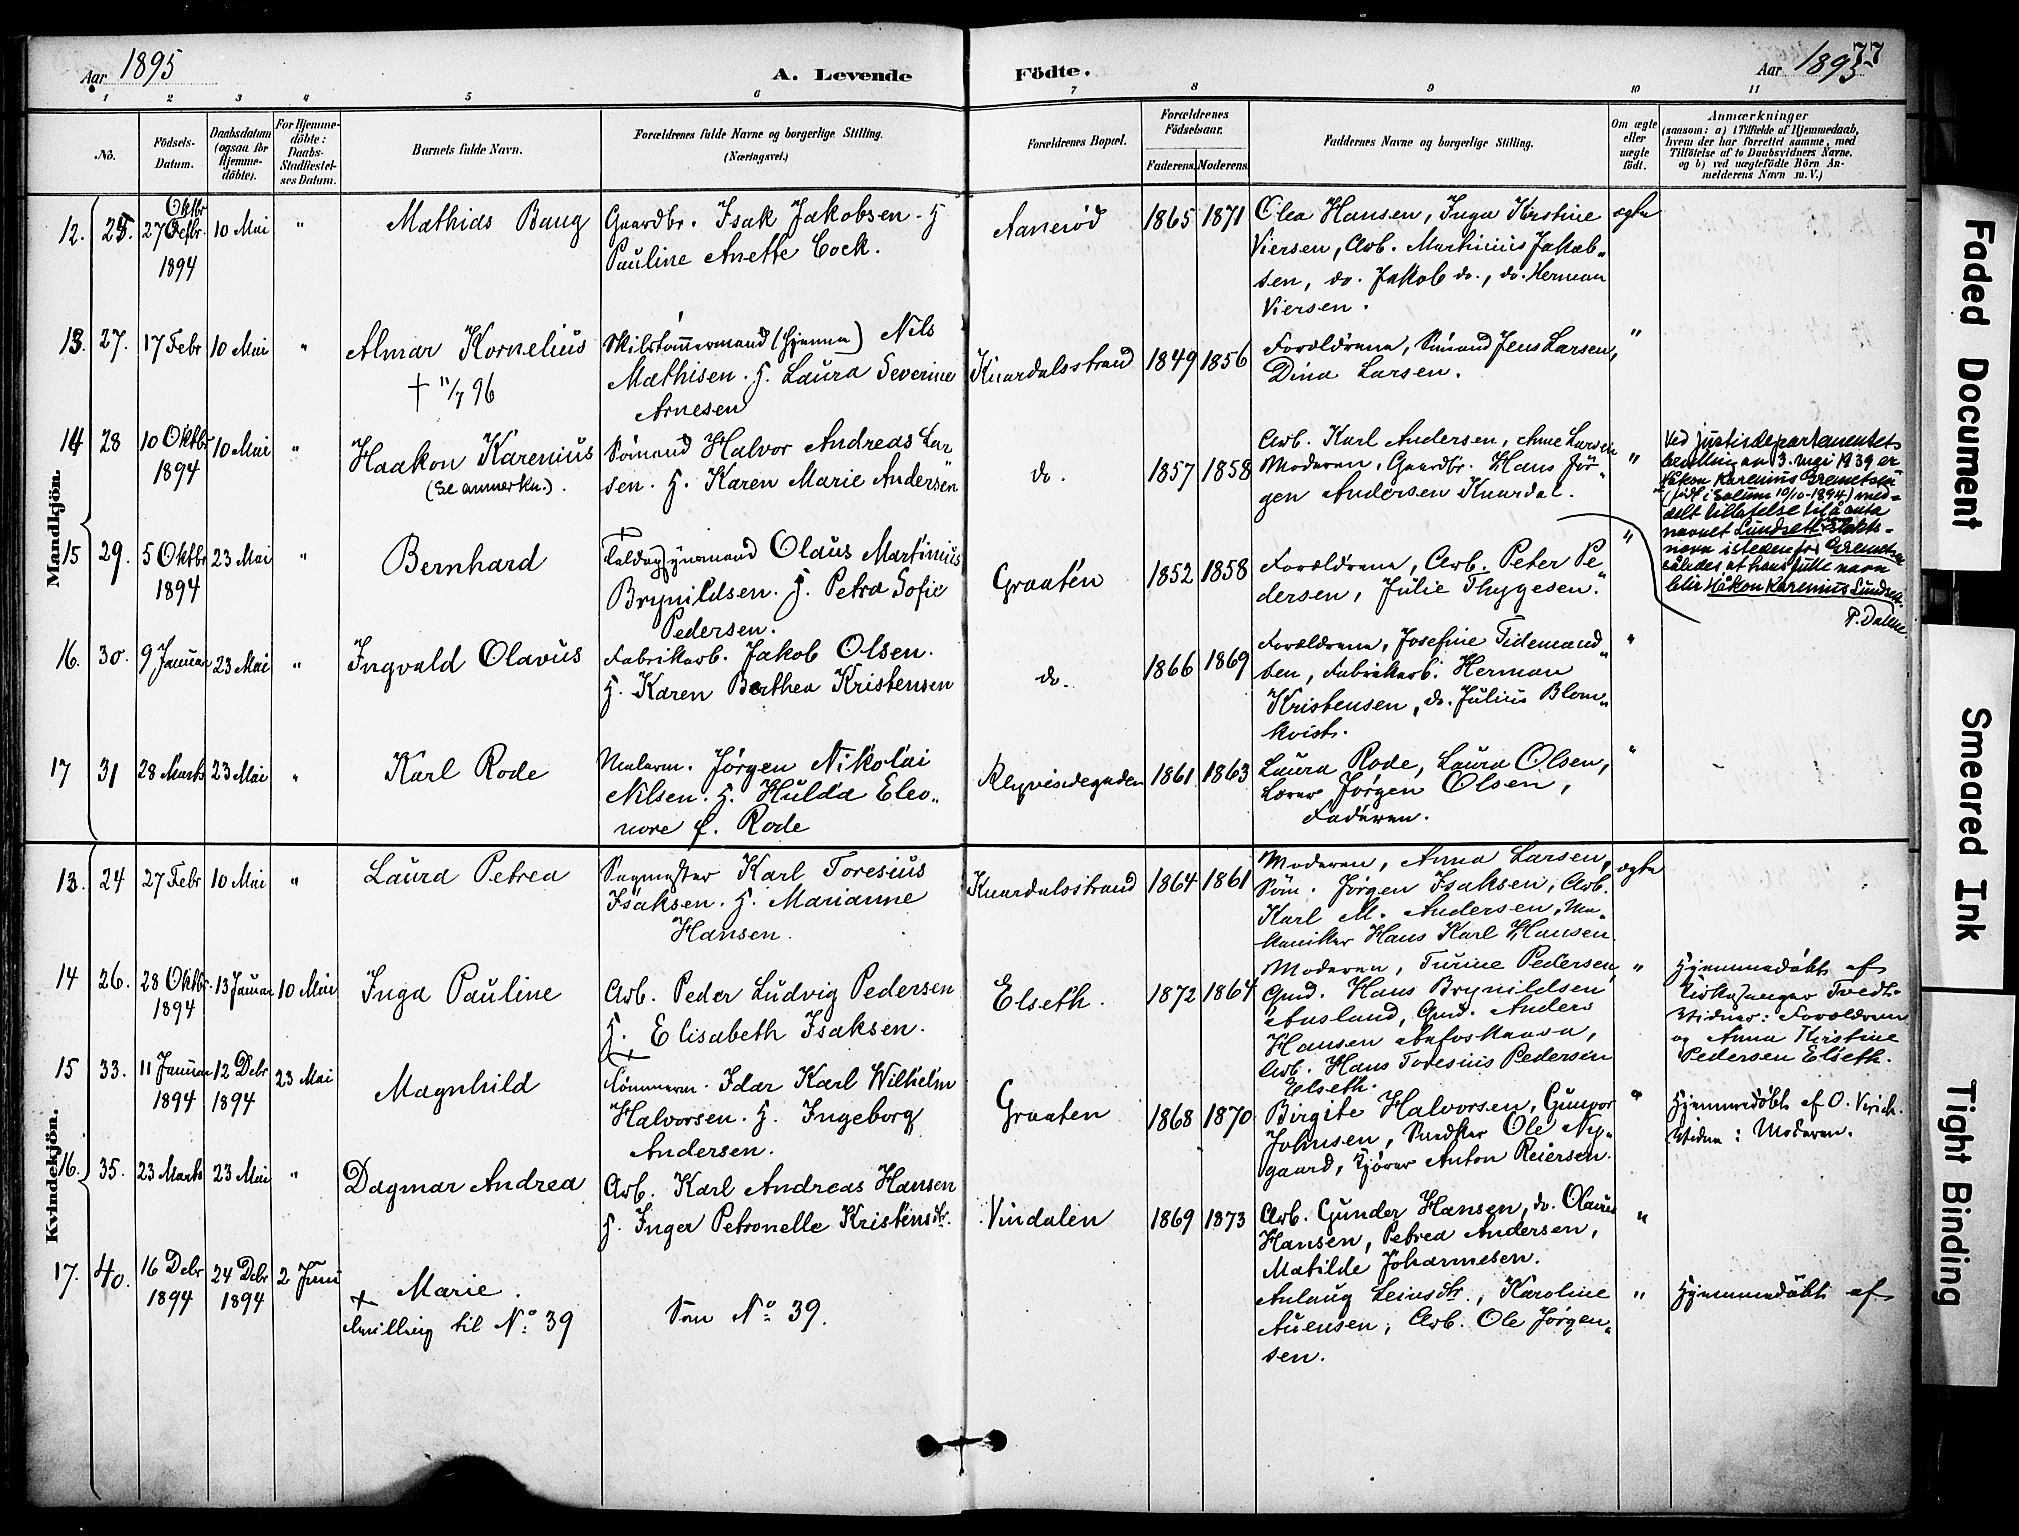 Aar 1895
A. Levende Födte.
Aar 1895
77
1 2 3 4 5 6 7 8 9 10 11
No.
Födsels-
Datum.
Daabsdatum
(ogsaa for
Hjemme-
döbte).
For Hjemme-
döbte:
Daabs-
Stadfæstel-
ses Datum.
Barnets fulde Navn.
Forældrenes fulde Navne og borgerlige Stilling.
(Næringsvei.)
Forældrenes Bopæl.
Forældrenes
Födselsaar.
Faderens. Moderens.
Faddernes Navne og borgerlige Stilling.
Om ægte
eller
uægte
födt.
Anmærkninger
(saasom: a) i Tilfælde af Hjemmedaab,
hvem der har forrettet samme, med
Tilföielse af to Daabsvidners Navne,
og b) ved uægtefödte Börn An-
melderens Navn m. V.)
Mandkjön.
12. 25. 27 Oktbr 1894 10 Mai "
Mathias Baug
Gaardbr. Isak Jakobsen. H
Pauline Anette Cock.
Aanerød
1865 1871
Olea Hansen, Inga Kirstine
Viersen, Arb. Martinius Jakob-
sen, do. Jakob do., do. Herman
Viersen.
ægte
13. 27. 17 Febr 10 Mai "
Almar Kornelius
† 11/7 96
(hjemme) Nils
Mathisen. H. Laura Severine
Arnesen
Knardalsstrand
1849 1856
Forældrene, Sømand Jens Larsen,
Dina Larsen.
"
14 28 10 Oktbr 1894 10 Mai "
Haakon Karenius
(Se anmerkn.).
Sømand Halvor Andreas Lar
sen. H. Karen Marie Andersen
do.
1857 1858
Arb. Karl Andersen, Anne Larsen
Moderen, Gaardbr. Hans Jør-
gen Andersen Knardal.
"
Ved justisdepartementets
bevilling av 3. mai 1939 er
Håkon Karenius
(født i Solum 10/10-1894) med-
delt tillatelse til å anta
navnet Lundsett slekts-
navn isteden for
således at hans fulle navn
blir Håkon Karenius Lundsett.
15 29. 5 Oktbr 1894 23 Mai "
Bernhard
Olaus Martinius
Brynildsen. H. Petra Sofie
Pedersen.
Graaten
1852 1858
Forældrene, Arb. Peter Pe
dersen, Julie Thygesen.
"
16. 30. 9 Januar 23 Mai "
Ingvald Olavus
Fabrikarb. Jakob Olsen.
H. Karen Berthea Kristensen
do.
1866 1869
Forældrene, Josefine Tidemand-
sen, Fabrikarb. Herman
Kristensen, do. Julius Blom-
kvist.
"
17 31 28 Marts 23 Mai "
Karl Rode
Malerm. Jørgen Nikolai
Nilsen. H. Hulda Eleo-
nore f. Rode
1861 1863
Laura Rode, Laura Olsen,
Lærer Jørgen Olsen,
Faderen.
"
Kvindekjön.
13. 24 27 Febr 10 Mai "
Laura Petrea
Sagmester Karl Toresius
Isaksen. H. Marianne
Hansen.
Knardalsstrand
1864 1861
Moderen, Anna Larsen,
Søm. Jørgen Isaksen, Arb.
Karl M. Andersen, Ma-
skiniker Hans Karl Hansen
ægte
14 26. 28 Oktbr. 1894 13 Januar 10 Mai
Inga Pauline
Arb. Peder Ludvig Pedersen
H. Elisabeth Isaksen.
Elseth.
1872 1864
Moderen, Turine Pedersen,
Gmd. Hans Brynildsen
Aasland, Gmd. Anders
Hansen
Arb. Hans Toresius Pedersen
Elseth.
"
Hjemmedøbt af
Kirkesanger Tvedt.
Vidner: Forældrene
og Anna Kirstine
Pedersen Elseth.
15 33. 11 Januar 1894 12 Debr 1894 23 Mai
Magnhild
Tømmerm. Idar Karl Wilhelm
Halvorsen. H. Ingeborg
Andersen.
Graaten
1868 1870
Birgite Halvorsen, Gunvor
Johnsen, Snedker Ole Ny-
gaard, Kjører Anton Reiersen.
"
Hjemmedøbt af O.
Vidne: Moderen.
16. 35. 23 Marts 23 Mai "
Dagmar Andrea
Arb. Karl Andreas Hansen
H. Inger Petronelle Kristensdtr.
Vindalen
1869 1873
Arb. Gunder Hansen, do. Olaus
Hansen, Petrea Andersen,
Matilde Johannesen.
"
17. 40. 16 Debr 1894 24 Debr 1894 2 Juni
Marie.
†
tvilling til No: 39
Som No: 39.
Aslaug Leinsdtr., Karoline
Auensen, Arb. Ole Jørgen-
sen.
"
Hjemmedøbt af
Faded Document
Smeared Ink
Tight Binding